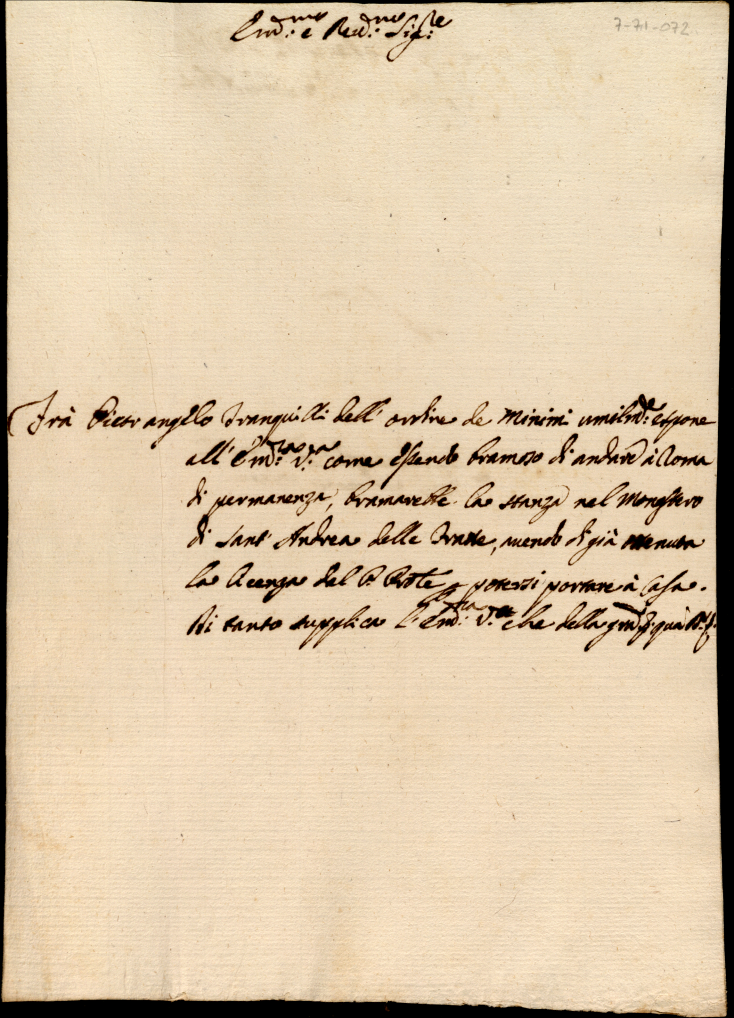 7-71-072
Em:mo e Red:mo Sig:re
Frà Pietr angelo Tranquilli dell' ordine de Minimi umilmd:e espone
all' Em:za V:a come essendo bramoso di andare à Roma
di permanenza, bramarebbe la stanza nel Monastero
di Sant' Andrea delle Fratte, avendo di già ottenuta
la licenza del P. potersi portare à Casa.
Di tanto supplica l' Em:za V:a che della